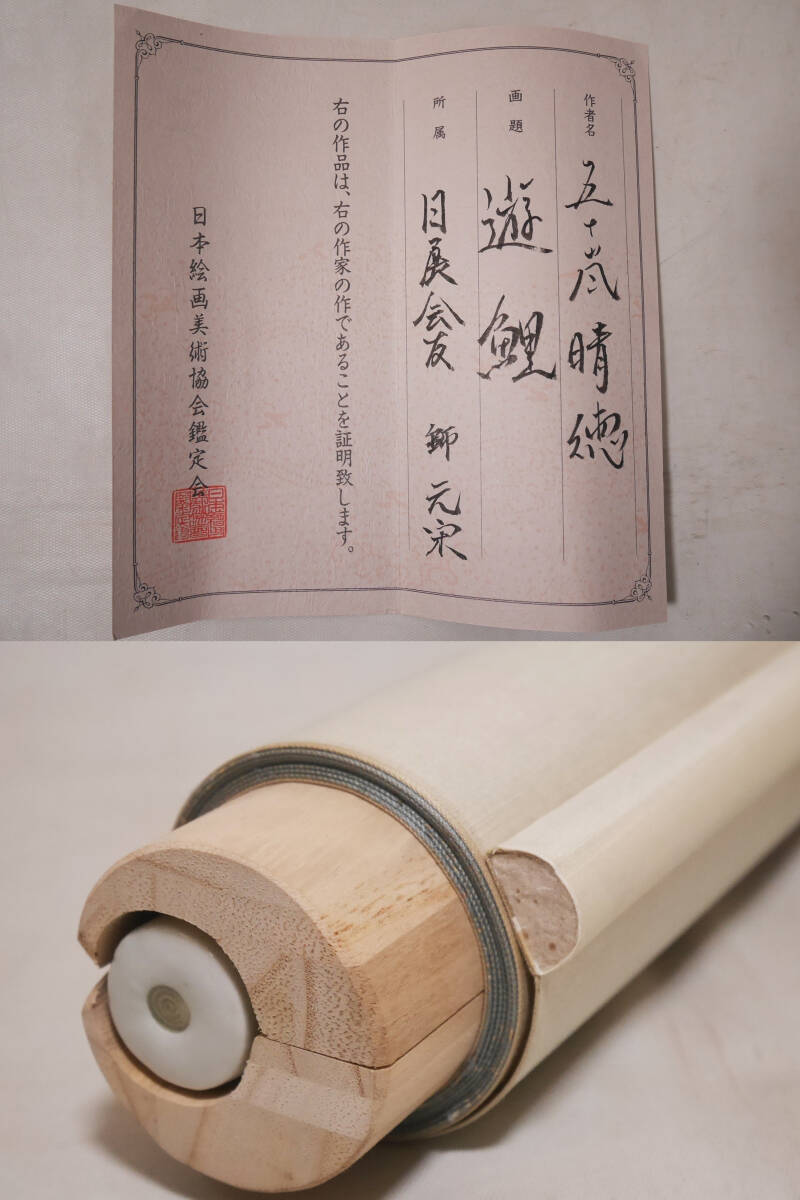 作者名 五十嵐晴徳
画題 遊鯉
所属 日展会友 師 元宋
右の作品は、右の作家の作であることを証明致します。
日本絵画美術協会鑑定会